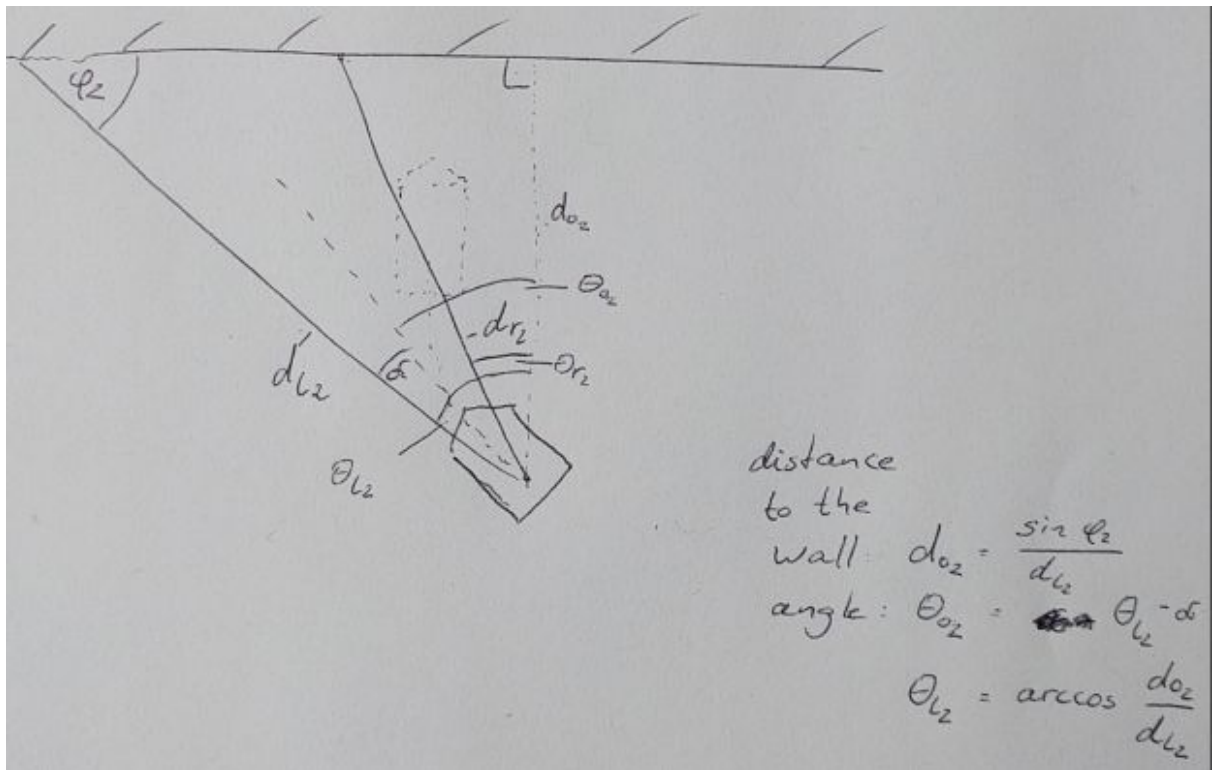 φ₂
d₀₂
θ₀₂
dr₂
θr₂
δ
dL₂
θL₂
distance
to the
wall: d₀₂ = sin φ₂ / dL₂
angle: θ₀₂ = θL₂ - δ
θL₂ = arccos d₀₂ / dL₂